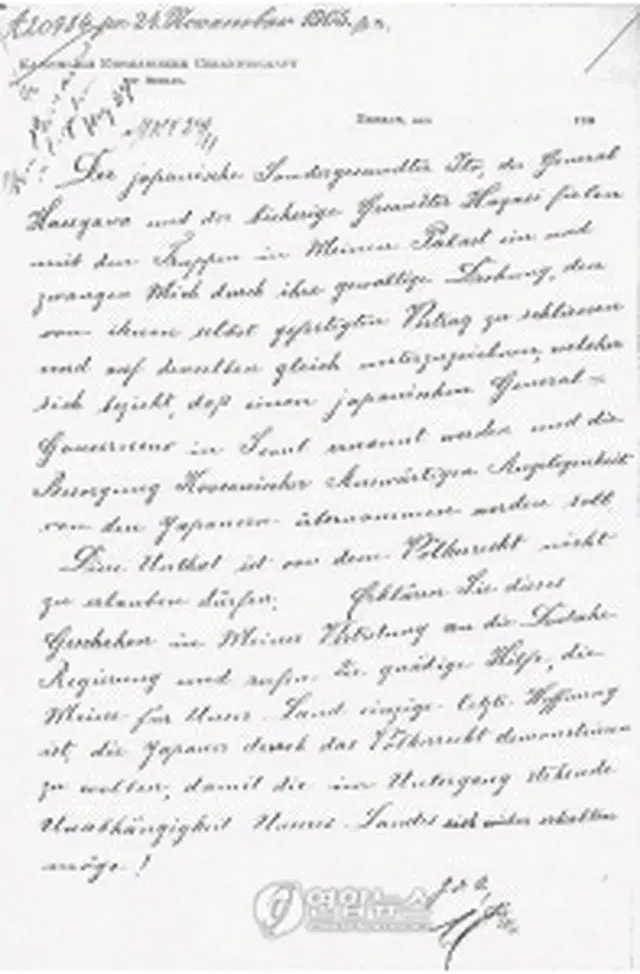 A 20984 pr 24. November 1905. p.m.
Kaiserlich Koreanische Gesandtschaft
Berlin, den 190
Der japanische Sondergesandter Ito, der General
Hasegawa und der bisherige Gesandter Hayasi fielen
mit den Truppen in Meinen Palast ein und
zwangen Mich durch ihre gewaltige Drohung, den
von ihnen selbst gefertigten Vertrag zu schliessen
und auf denselben gleich unterzuzeichnen, welcher
sich bezieht, daß einen japanischen General-
Gouverneur in Seoul ernannt werden und die
Besorgung Koreanischer Auswärtigen Angelegenheit
von den Japanern übernommen werden soll.
Diese Unthat ist von dem Völkerrecht nicht
zu erlauben dürfen. Erklären Sie dieses
Geschehen in Meiner Vertretung an die Deutsche
Regierung und rufen Sie gnädige Hilfe, die
Meine für Unser Land einzige letzte Hoffnung
ist, die Japaner durch das Völkerrecht demonstrieren
zu wollen, damit die im Untergang stehende
Unabhängigkeit Unseres Landes sich wieder erhalten
möge!
연합뉴스